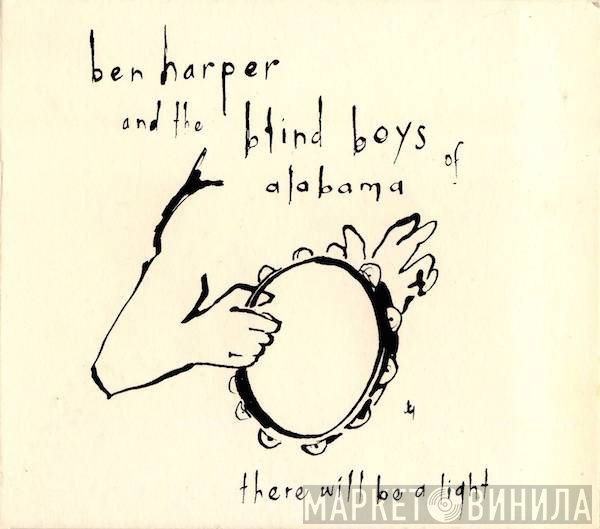 ben harper
and the blind boys of
alabama
there will be a light
МАРКЕТ ВИНИЛА